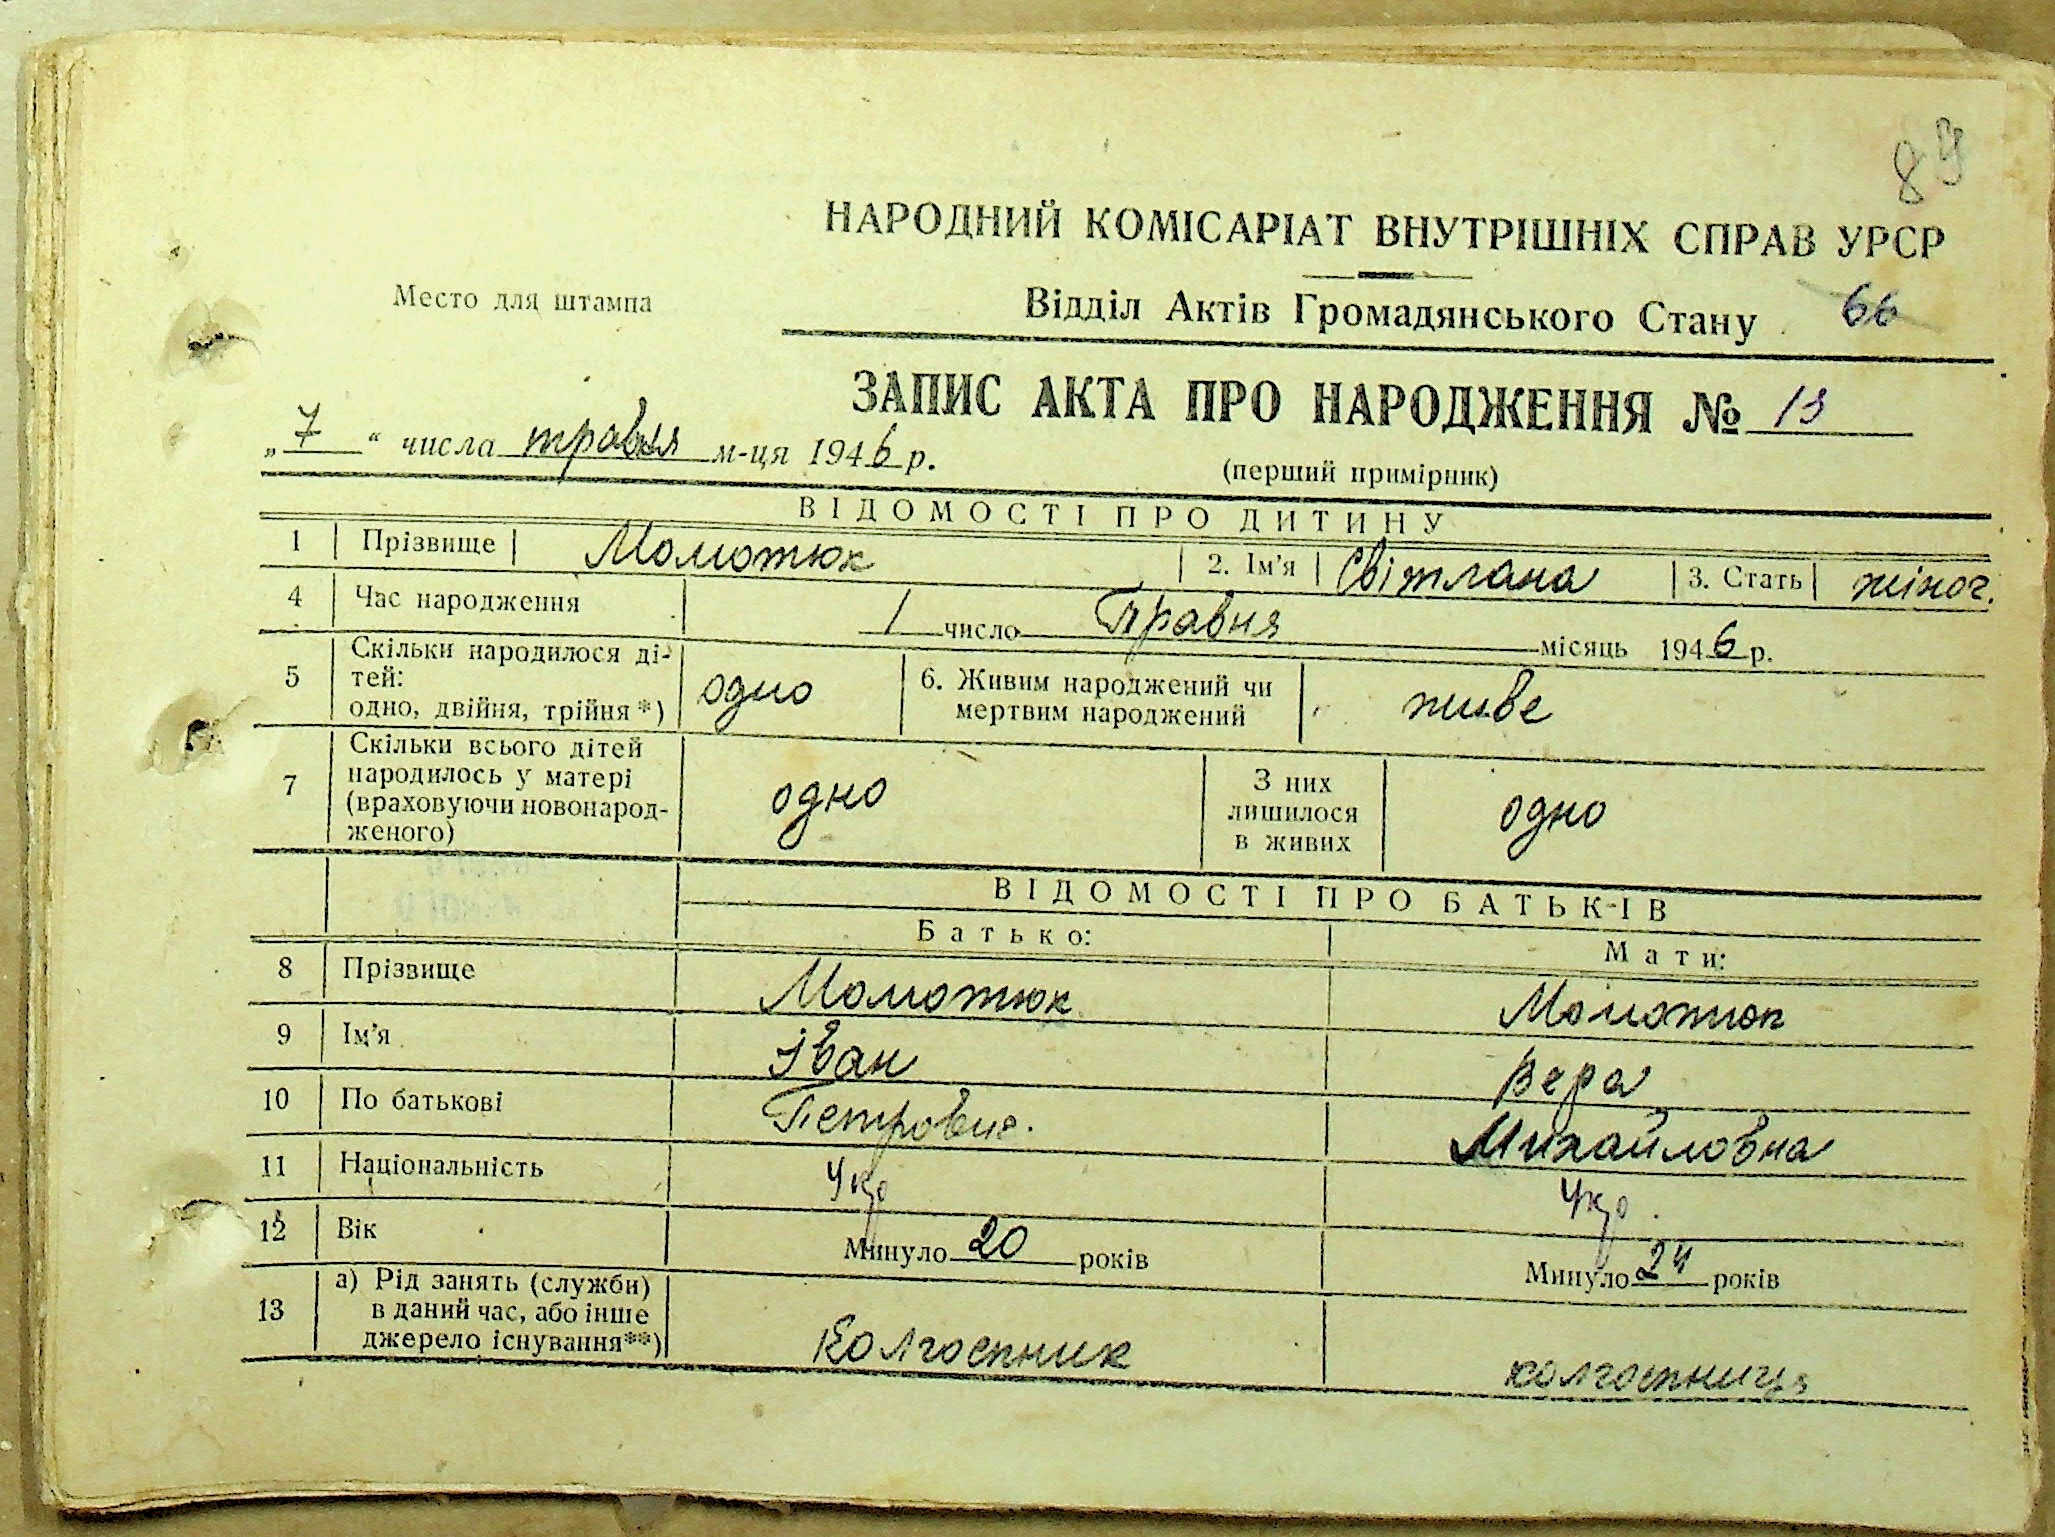 89
НАРОДНИЙ КОМІСАРІАТ ВНУТРІШНІХ СПРАВ УРСР
Место для штампа
Відділ Актів Громадянського Стану 66
ЗАПИС АКТА ПРО НАРОДЖЕННЯ № 13
„7“ числа травня м-ця 1946 р.
(перший примірник)
ВІДОМОСТІ ПРО ДИТИНУ
1 Прізвище Момотюк 2. Ім'я Світлана 3. Стать жіноч.
4 Час народження 1 число Травня місяць 1946 р.
5 Скільки народилося ді-
тей:
одно, двійня, трійня*) одно 6. Живим народжений чи
мертвим народжений живе
7 Скільки всього дітей
народилось у матері
(враховуючи новонарод-
женого) одно З них
лишилося
в живих одно
ВІДОМОСТІ ПРО БАТЬК-ІВ
Батько: Мати:
8 Прізвище Момотюк Момотюк
9 Ім'я Іван Вера
10 По батькові Петрович. Михайловна
11 Національність Укр Укр.
12 Вік Минуло 20 років Минуло 24 років
13 а) Рід занять (служби)
в даний час, або інше
джерело існування**) Колгоспник колгоспниця